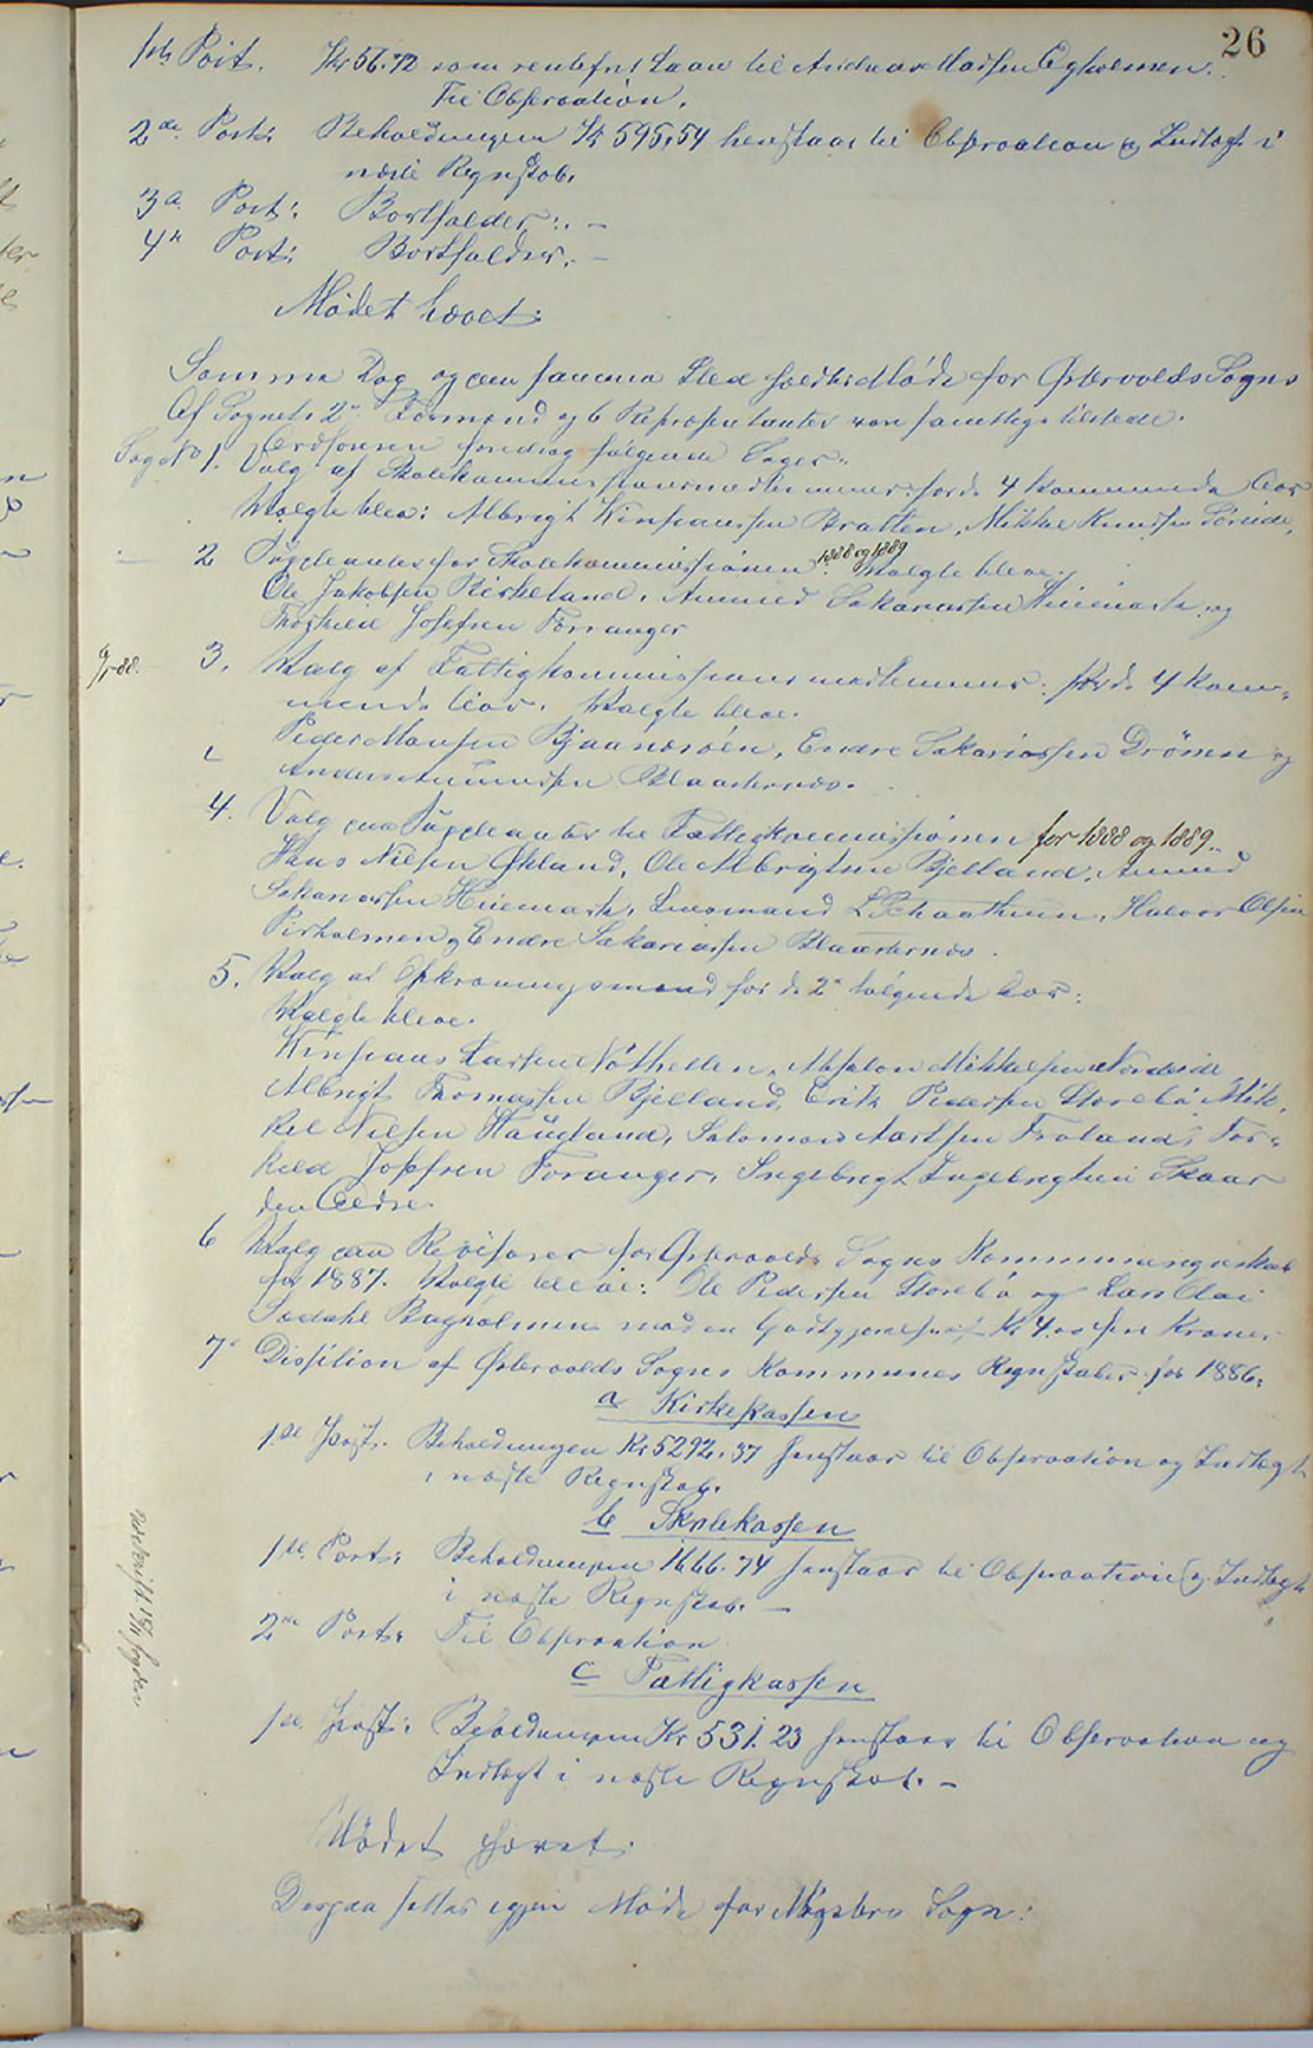 26
1ste Post. Kr 56.72 som rentefrit Laan til Andreas Madssen Egholmen.
Til Observation.
2de Post: Beholdningen Kr 595,54 henstaar til Observation og Indtægt i
næste Regnskab.
3die Post: Bortfalder: . –
4de Post: Bortfalder. –
Mødet hævet.
Samme Dag og paa samme Sted holdtes Møde for Østervolds Sogn
Af Sognets 2de Formænd og 6 Repræsentanter vare samtlige tilstede.
Ordføreren foredrog følgende Sager:
Sag No 1. Valg af Skolekommissionsmedlemmer for de 4 kommende Aar
Valgte blev: Albrigt Kinsarssen Bratten, Mikkel Knudsen Søreide.
— 2 Suppleanter for Skolekommissionen 1888 og 1889. Valgte bleve:
Ole Jakobsen Birkeland, Ammund Sakariassen Hiiemark og
Josefsen Forranger
3. Valg af Fattigkommissions medlemmer: for de 4 kom-
mende Aar. Valgte bleve.
Peder Monsen Bjaanæsöen, Endre Sakariassen Drönen og
Anders Blaatternæs.
4. Valg paa Suppleanter til Fattigkommissionen for 1888 og 1889.
Hans Nilsen Økland, Ole Albrigtsen Bjelland, Ammund
Sakariassen Hiiemark, Lensmand L. Halvor Olsen
Pirholmen og Endre Sakariassen Blaaternæs.
5. Valg af Opkrævningsmænd for de 2de følgende Aar:
Valgte bleve.
Larssen Nøthellen, Absalon Mikkelsen Nordeide
Albrigt Thomassen Bjelland, Erik Pedersen Storebø Mik-
kel Nilsen Haugland, Salomon Froland, Tor-
kild Josefsen Foranger, Ingebrigt Ingebrigtsen Skaar
den Ældre.
6 Valg paa Revisorer for Østervolds Sogns Kommuneregnskab
for 1887. Valgte bleve: Ole Pedersen Storebø og Lars Olai
Sædahl Bagholmen mod en Godtgjørelse af Kr 4.00 fire Kroner.
7de Dissition af Østervolds Sogns Kommunes Regnskaber for 1886.
a Kirkekassen
1ste Post. Beholdningen Kr 5292.37 henstaar til Observation og Indtægt
i næste Regnskab.
b Skolekassen
1ste Post: Beholdningen 1666.74 henstaar til Observation og Indtægt
i næste Regnskab. –
2den Post: Til Observation
c Fattigkassen
1ste Post: Beholdningen Kr 531.23 henstaar til Observation og
Indtægt i næste Regnskab. –
Mødet hævet.
Derpaa sattes igjen Møde for Møgsters Sogn:
Udskrift